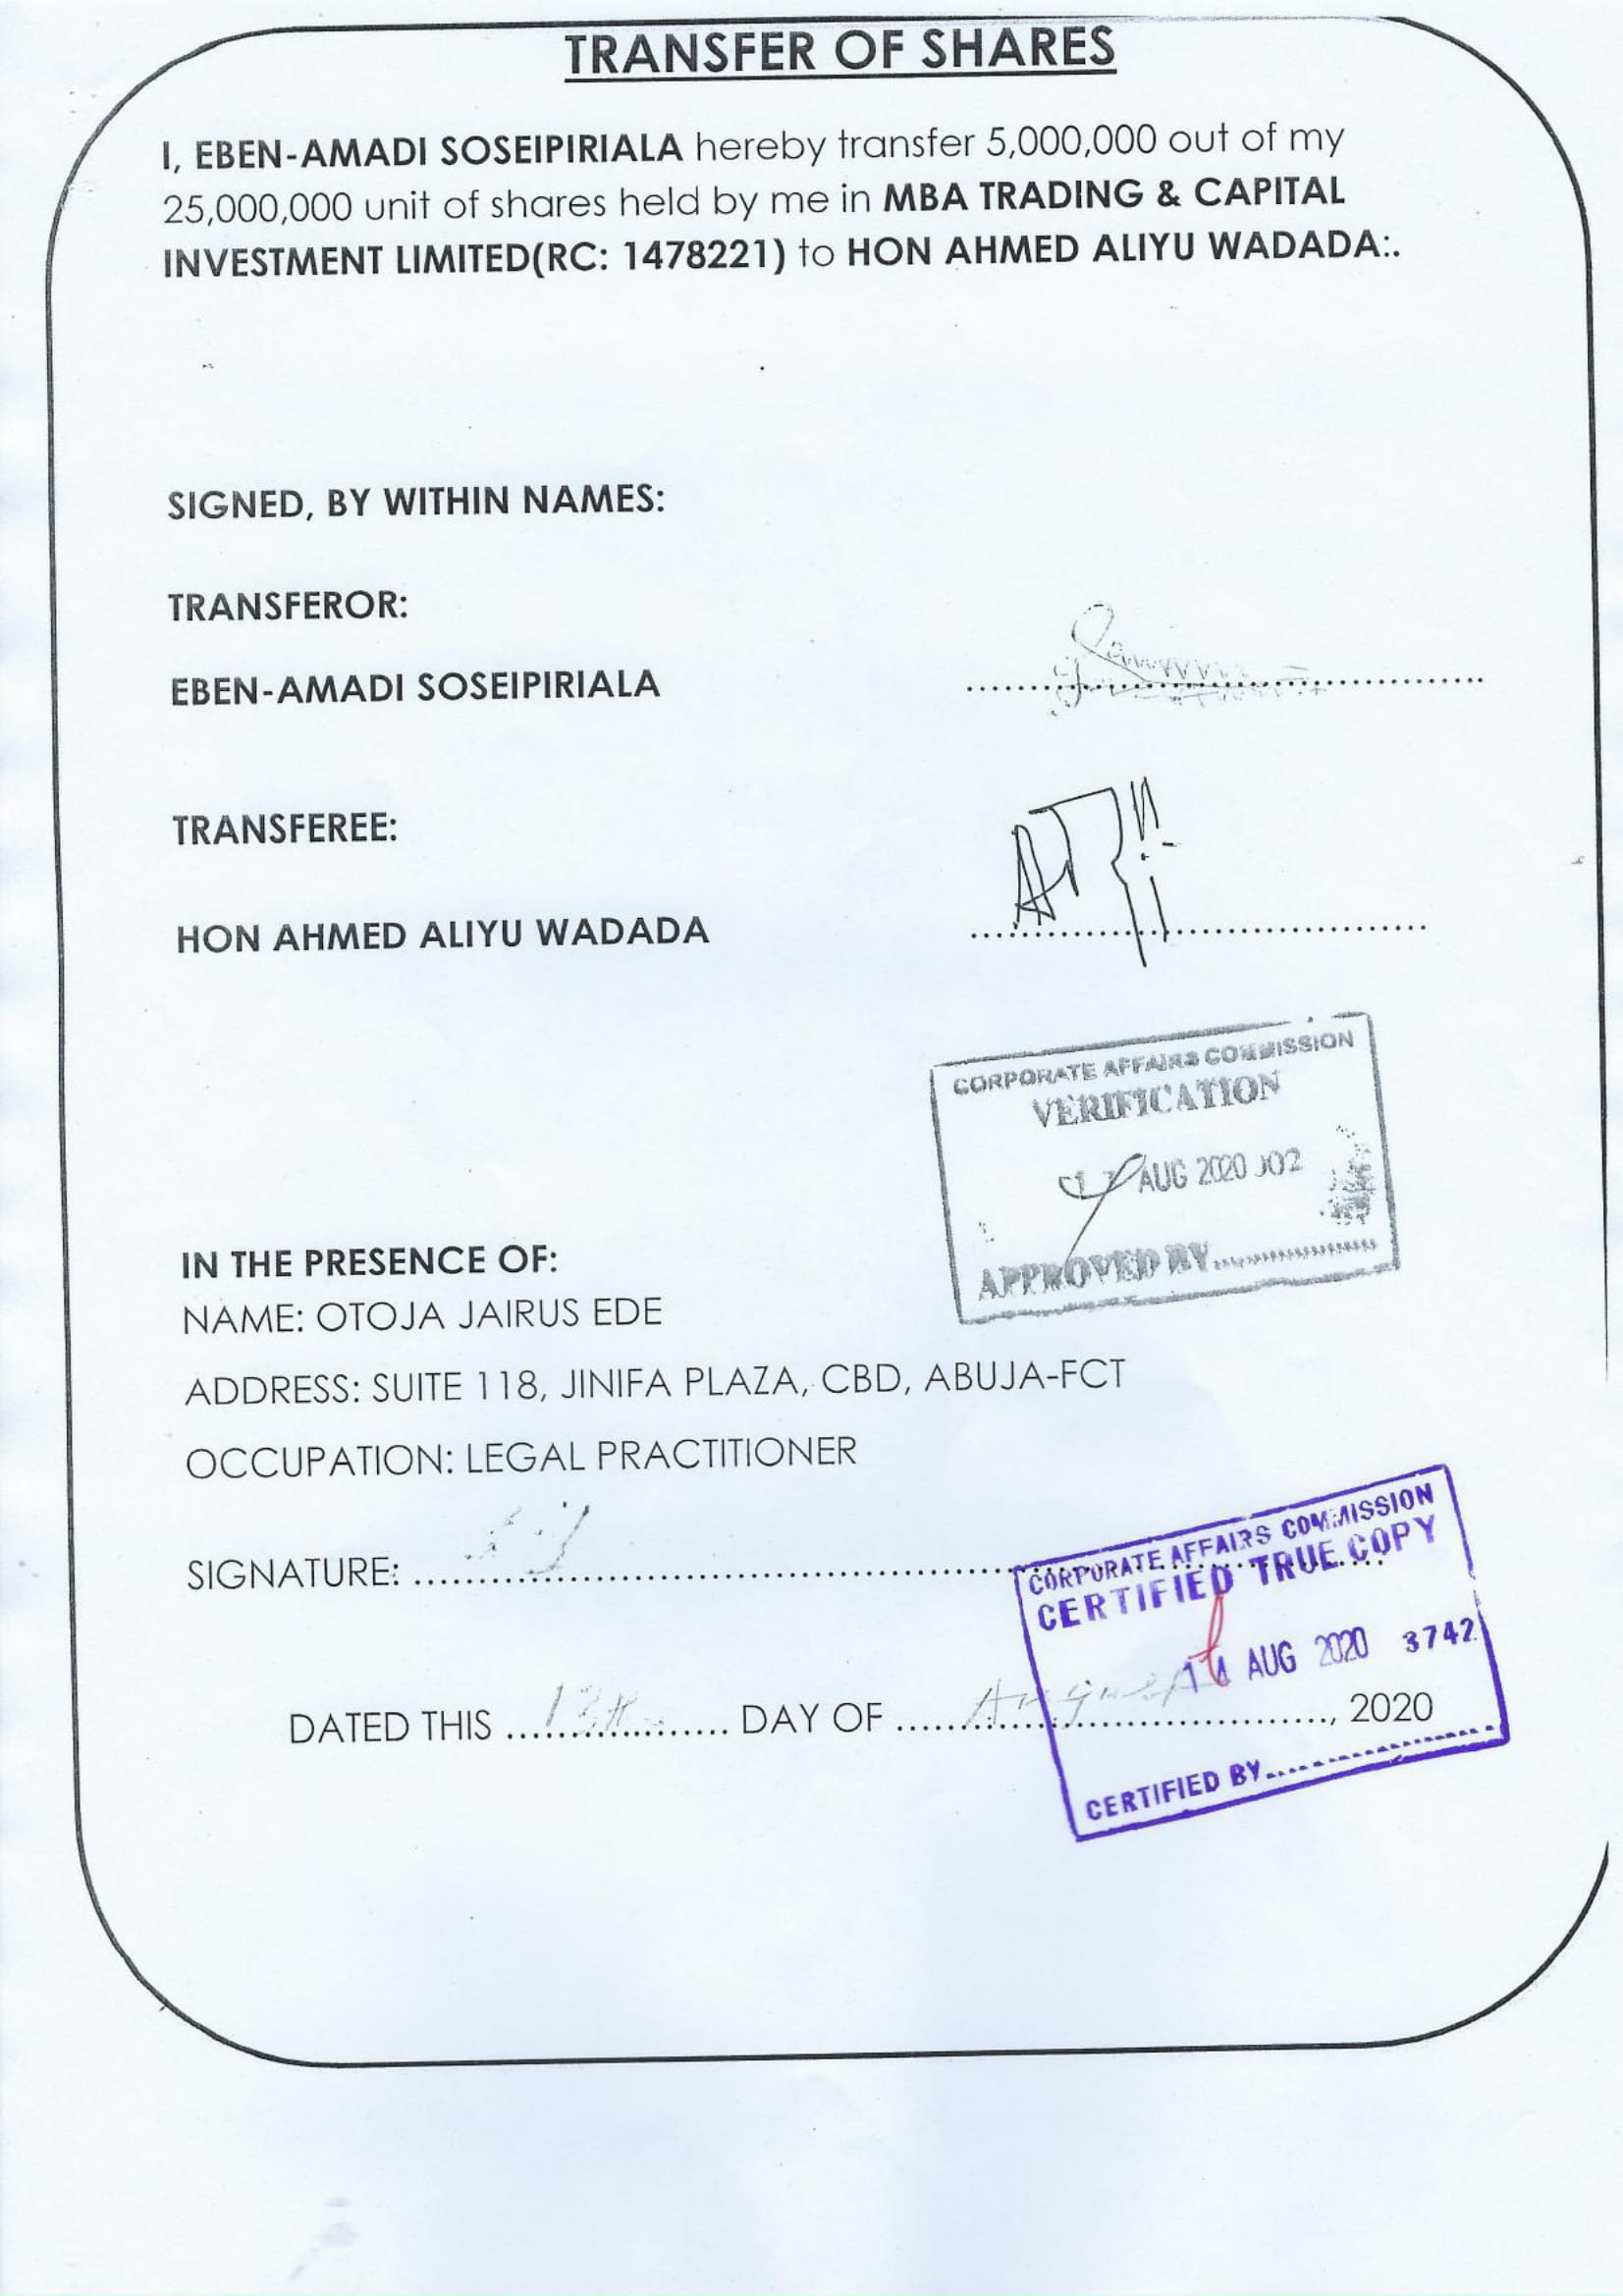 TRANSFER OF SHARES
I, EBEN-AMADI SOSEIPIRIALA hereby transfer 5,000,000 out of my
25,000,000 unit of shares held by me in MBA TRADING & CAPITAL
INVESTMENT LIMITED(RC: 1478221) to HON AHMED ALIYU WADADA:.
SIGNED, BY WITHIN NAMES:
TRANSFEROR:
EBEN-AMADI SOSEIPIRIALA
TRANSFEREE:
HON AHMED ALIYU WADADA
CORPORATE AFFAIRS COMMISSION
VERIFICATION
AUG 2020
APPROVED BY
IN THE PRESENCE OF:
NAME: OTOJA JAIRUS EDE
ADDRESS: SUITE 118, JINIFA PLAZA, CBD, ABUJA-FCT
OCCUPATION: LEGAL PRACTITIONER
SIGNATURE:
CORPORATE AFFAIRS COMMISSION
CERTIFIED TRUE COPY
14 AUG 2020 3742
DATED THIS DAY OF August, 2020
CERTIFIED BY